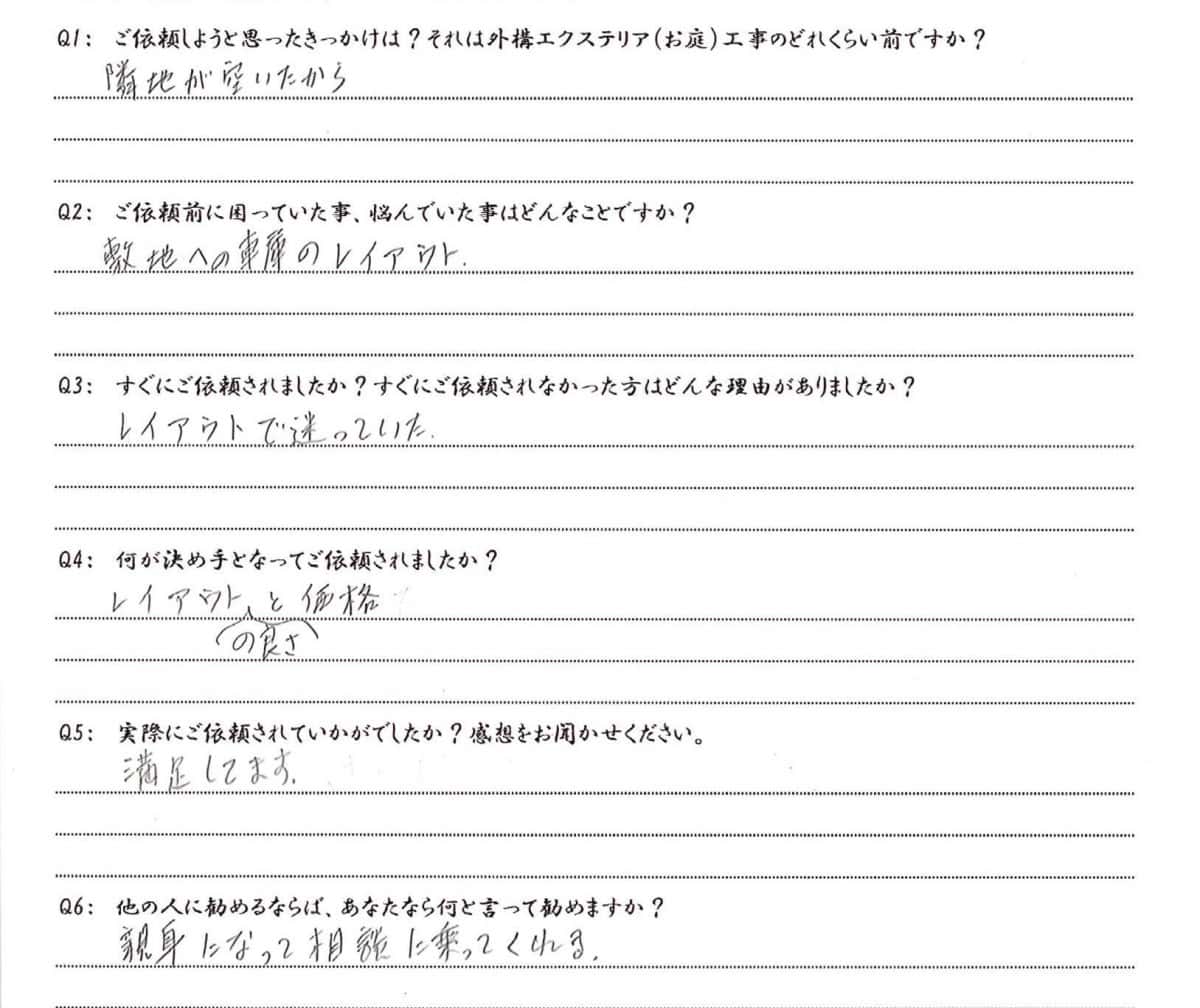 Q1: ご依頼しようと思ったきっかけは？それは外構エクステリア(お庭)工事のどれくらい前ですか？
隣地が空いたから
Q2: ご依頼前に困っていた事、悩んでいた事はどんなことですか？
敷地への車庫のレイアウト.
Q3: すぐにご依頼されましたか？すぐにご依頼されなかった方はどんな理由がありましたか？
レイアウトで迷っていた.
Q4: 何が決め手となってご依頼されましたか？
レイアウトと価格
(の良さ)
Q5: 実際にご依頼されていかがでしたか？感想をお聞かせください。
満足してます.
Q6: 他の人に勧めるならば、あなたなら何と言って勧めますか？
親身になって相談に乗ってくれる.